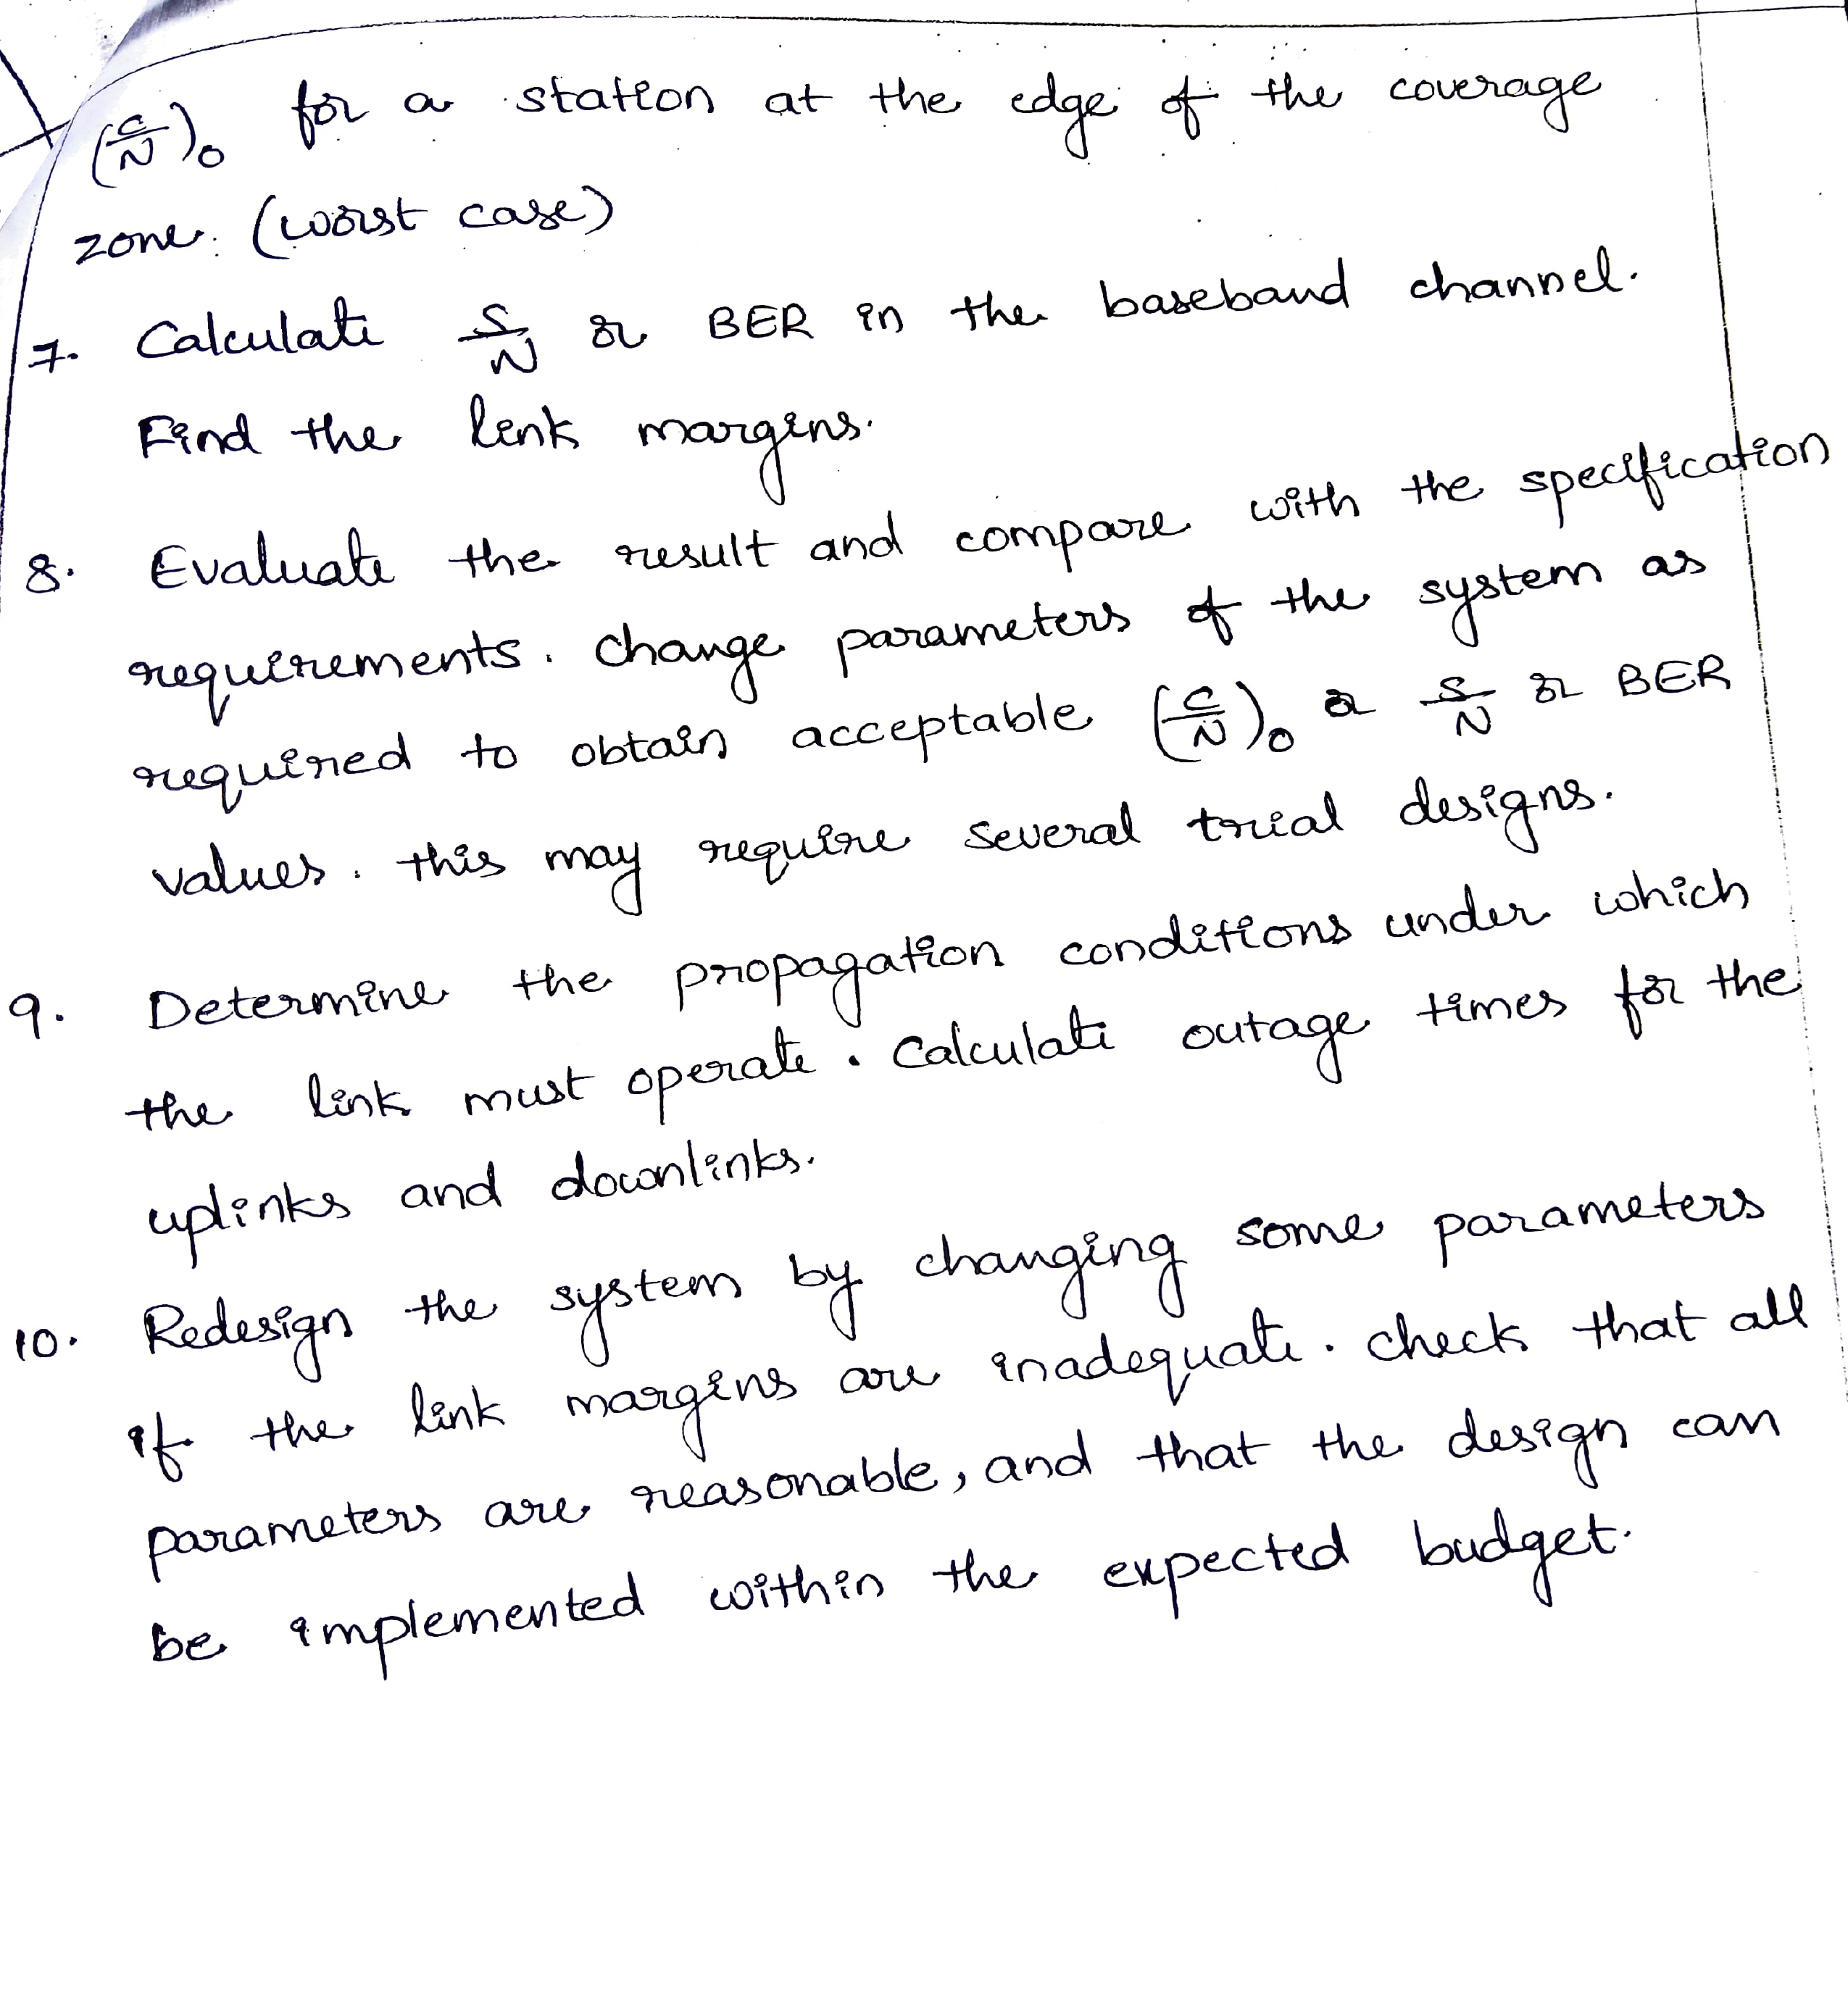 (C/N)₀ for a station at the edge of the coverage
zone. (worst case)
7. Calculate S/N or BER in the baseband channel.
Find the link margins.
8. Evaluate the result and compare with the specification
requirements. Change parameters of the system as
required to obtain acceptable (C/N)₀ or S/N or BER
values. this may require several trial designs.
9. Determine the propagation conditions under which
the link must operate. Calculate outage times for the
uplinks and downlinks.
10. Redesign the system by changing some parameters
if the link margins are inadequate. check that all
parameters are reasonable, and that the design can
be implemented within the expected budget.